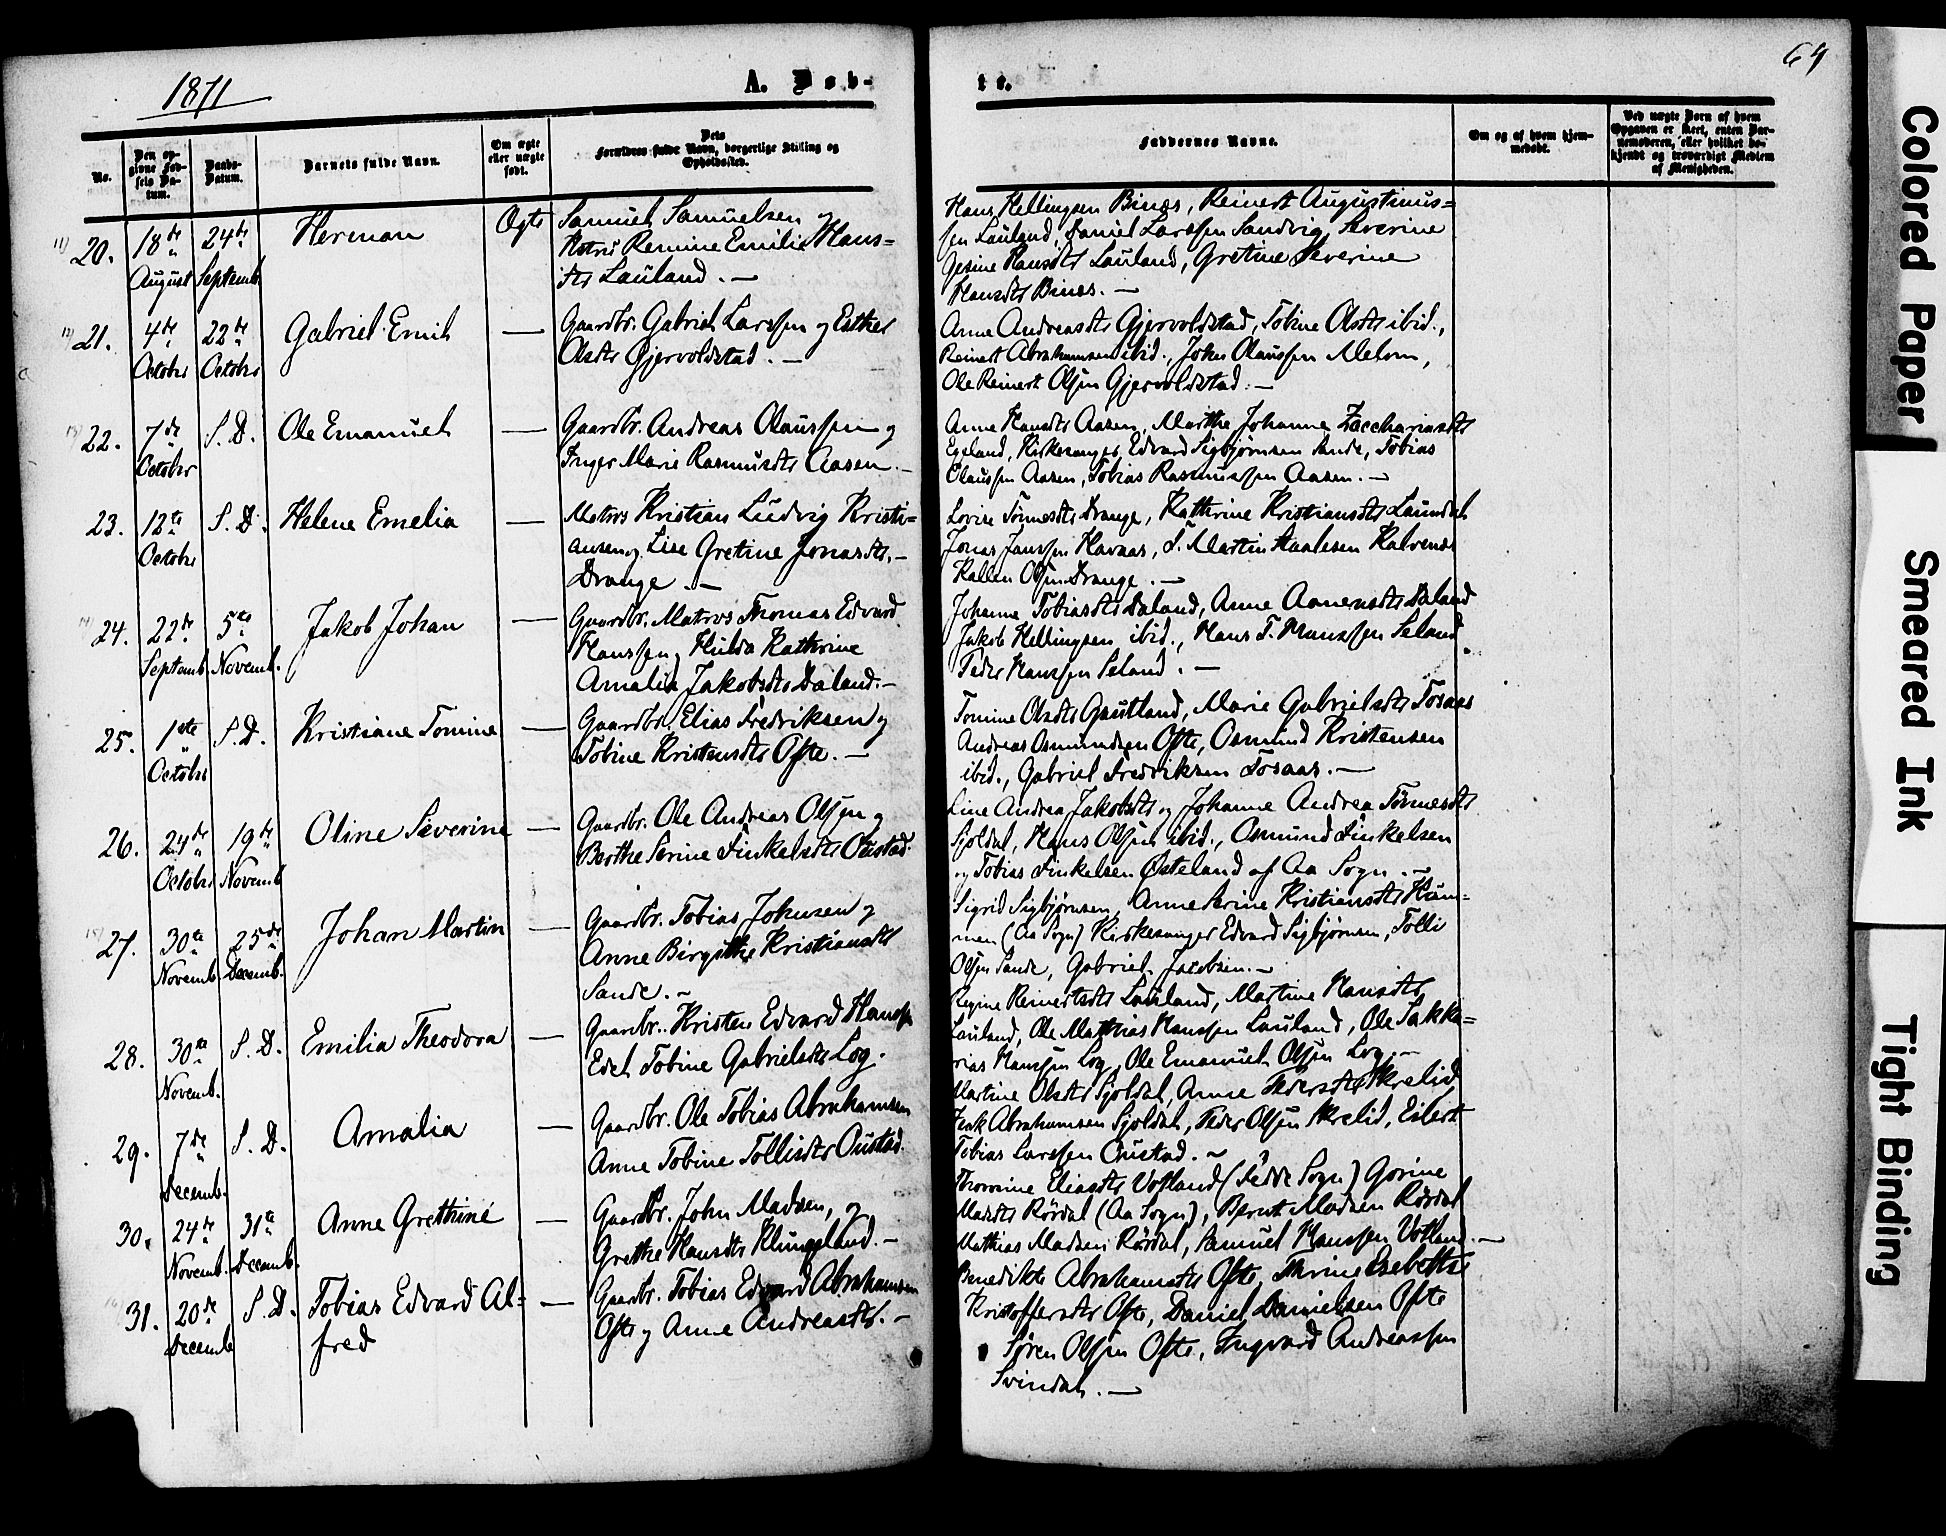 1871
A. Døb-
te.
64
No.
Den opgivne Fødsels Datum.
Daabs-Datum.
Barnets fulde Navn.
Om ægte eller uægte født.
Forældres fulde Navn, borgerlige Stilling og Opholdssted.
Faddernes Navne.
Om og af hvem hjemmedøbt.
20. 18de August 24de Septemb. Herman Ægte
Samuel Samuelsen og
Hustru Remine Emilie Hans=
dtr Lauland. —
Hans Hellingsen Binæs, Reinert Augustinus=
sen Lauland, Daniel Larssen Sandvig, Severine
Gesine Hansdtr Lauland, Gretine Severine
Hansdtr Binæs. —
21. 4de Octobr 22de Octobr Gabriel Emil —
Gaardbr. Gabriel Larssen og Esther
Olsdtr Gjervoldstad. —
Anne Andreasdtr Gjervoldstad, Tobine Olsdtr ibid.,
Reinert Abrahamsen ibid., John Olaussen
Ole Reinert Olsen Gjervoldstad. —
22. 7de Octobr S. D. Ole Emanuel —
Gaardbr. Andreas Olaussen og
Inger Marie Rasmusdtr Aasen. —
Anne Hansdtr Aasen, Marthe Johanne Zacchariasdtr
Egeland, Kirkesanger Edvard Sigbjørnsen Sande, Tobias
Olaussen Aasen, Tobias Rasmussen Aasen. —
23. 12te Octobr S. D. Helene Emelia —
Matros Kristian Ludvig Kristi=
ansen og Lise Gretine Jonasdtr. —
Drange —
Lovise Tønnesdtr Drange, Kathrine Kristiansdtr Laundal
Jonas Janssen Havaas, S. Martin
Olsen Drange. —
24. 22de Septemb. 5te Novemb. Jakob Johan —
Gaardbr. Matros Thomas Edvard
Hanssen og Hulda Kathrine
Amalia Jakobsdtr Daland. —
Johanne Tobiasdtr Daland, Anne Aanensdtr Daland
Jakob Hellingsen ibid., Hans T. Hanssen Seland
Peder Hanssen Seland. —
25. 1ste Octobr S. D. Kristiane Tomine —
Gaardbr. Elias Fredriksen og
Tobine Kristensdtr Ofte. —
Tomine Olsdtr Gautland, Marie Gabrielsdtr Fosaas
Andreas Osmundsen Ofte, Osmund Kristensen
ibid., Gabriel Fredriksen Fosaas. —
26. 24de Octobr 19de Novemb Oline Severine —
Gaardbr. Ole Andreas Olsen og
Berthe Serine Finkelsdtr Oustad.
Line Andrea Jakobsdtr og Johanne Andrea Tønnesdtr
Sjøldal, Hans Olsen ibid., Osmund Finkelsen
og Tobias Finkelsen Østeland af Aa Sogn. —
27. 30te Novemb. 25de Decemb. Johan Martin —
Gaardbr. Tobias Johnsen og
Anne Birgitthe Kristiansdtr
Sande. —
Sigrid Sigbjørnsen, Anne Serine Kristiansdtr Hum=
men (Aa Sogn) Kirkesanger Edvard Sigbjørnsen, Tolli
Olsen Sande, Gabriel Jacobsen. —
28. 30te Novemb. S. D. Emilia Theodora —
Gaardbr. Kristen Edvard Hanssen
Edel Tobine Gabrielsdtr Log.
Regine Reinertsdtr Lauland, Martine Hansdtr
Lauland, Ole Matthias Hanssen Lauland, Ole Sakka=
rias Hanssen Log, Ole Emanuel Olsen Log. —
29. 7de Decemb. S. D. Amalia —
Gaardbr. Ole Tobias Abrahamsen
Anne Tobine Tollisdtr Oustad.
Martine Olsdtr Sjøldal, Anne Pedersdtr Skrelid
Abrahamsen Sjøldal, Peder Olsen Skrelid, Eilert
Tobias Larssen Oustad. —
30. 24de Novemb. 31te Decemb. Anne Grethine —
Gaardbr. John Madsen, og
Grethe Hansdtr Klungland. —
Eliasdtr Votland (Fedde Sogn) Gorine
Madsdtr Rørdal (Aa Sogn), Bernt Madsen Rørdal
Mathias Madsen Rørdal, Samuel Hanssen Votland. —
31. 20de Decemb S. D. Tobias Edvard Al=
fred —
Gaardbr. Tobias Edvard Abrahamsen
Ofte og Anne Andreasdtr. —
Benedikte Abrahamsdtr Ofte, Thrine Elisebethe
Kristoffersdtr Ofte, Daniel Danielsen Ofte
Søren Olsen Ofte, Ingvard Andreassen
Svindal. —
Colored Paper
Smeared Ink
Tight Binding